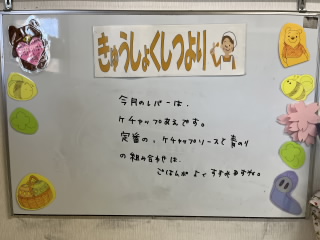 きゅうしょくしつより
今月のレバーは、
ケチャップあえです。
定番の、ケチャップソースと青のり
の組み合わせは、
ごはんが よくすすみますね。